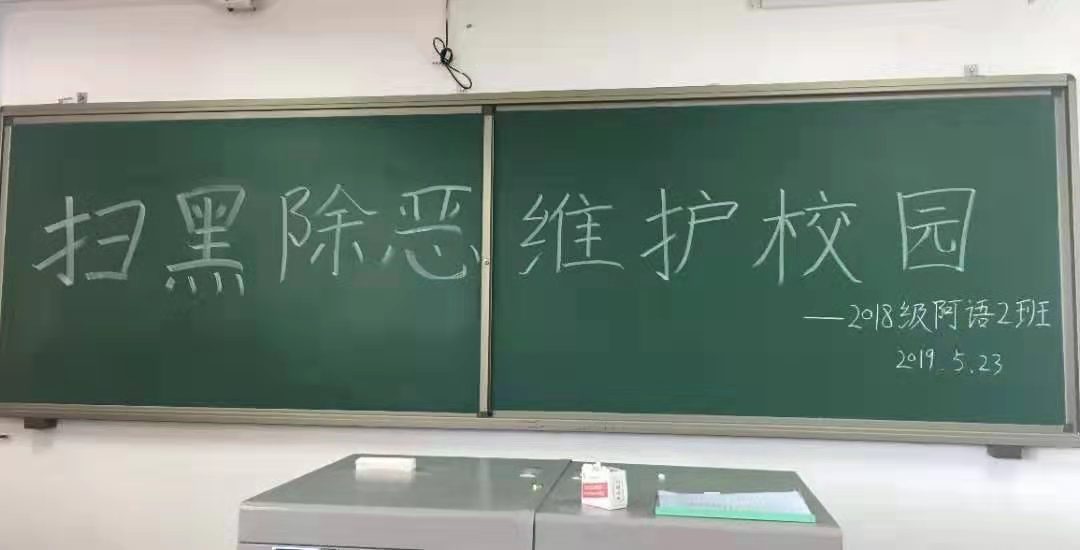 扫黑除恶维护校园
—2018级阿语2班
2019.5.23